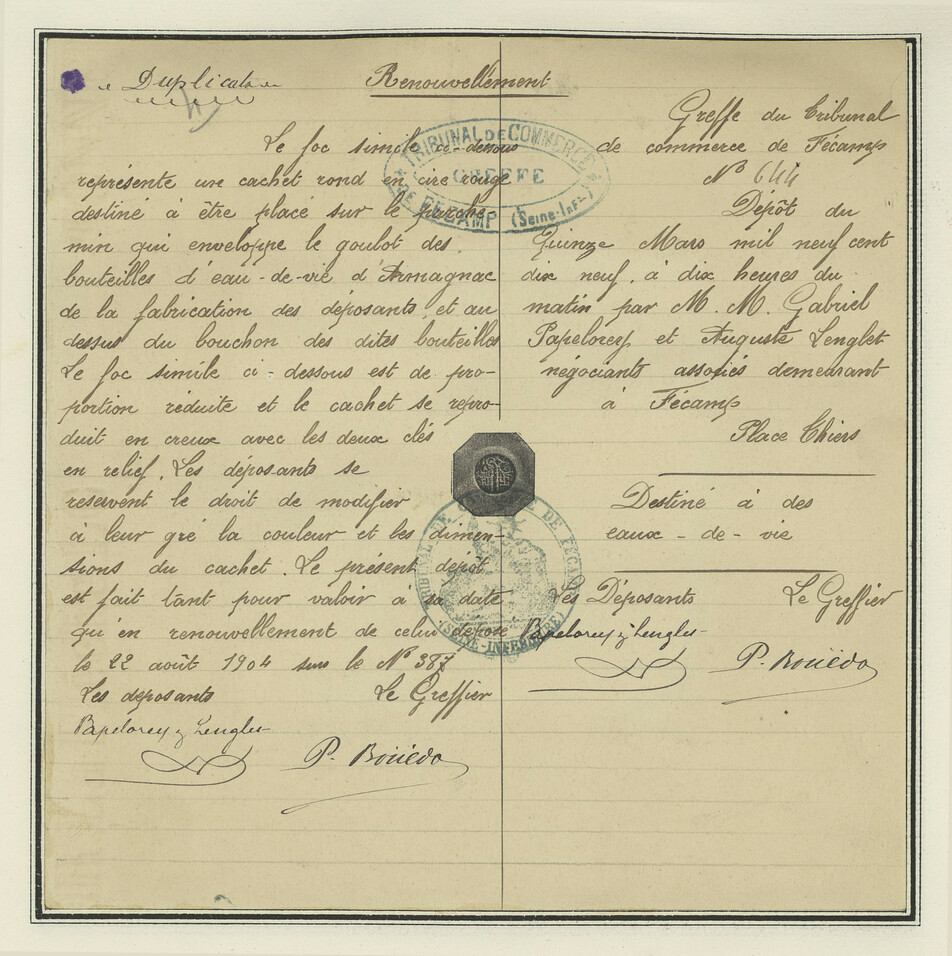 « Duplicata »
Renouvellement
Le fac simile ci-dessous
représente un cachet rond en cire rouge
destiné à être placé sur le parche-
min qui enveloppe le goulot des
bouteilles d'eau-de-vie d'Armagnac
de la fabrication des déposants, et au
dessus du bouchon des dites bouteilles
Le fac simile ci-dessous est de pro-
portion réduite et le cachet se repro-
duit en creux avec les deux clés
en relief. Les déposants se
reservent le droit de modifier
à leur gré la couleur et les dimen-
sions du cachet. Le présent dépôt
est fait tant pour valoir à sa date
qu'en renouvellement de celui déposé
le 22 août 1904 sous le N° 387
Les déposants Le Greffier
Papelorey & Lenglet
P. Bouëdo
Greffe du Tribunal
de commerce de Fécamp
N° 644
Dépôt du
Quinze Mars mil neuf cent
dix neuf, à dix heures du
matin par M. M. Gabriel
Papelorey et Auguste Lenglet
négociants associés demeurant
à Fécamp
Place Thiers
Destiné à des
eaux-de-vie
Les Déposants Le Greffier
Papelorey & Lenglet
P. Bouëdo
TRIBUNAL DE COMMERCE
GREFFE
DE FECAMP (Seine-Infre)
TRIBUNAL DE COMMERCE DE FECAMP
(SEINE-INFERIEURE)